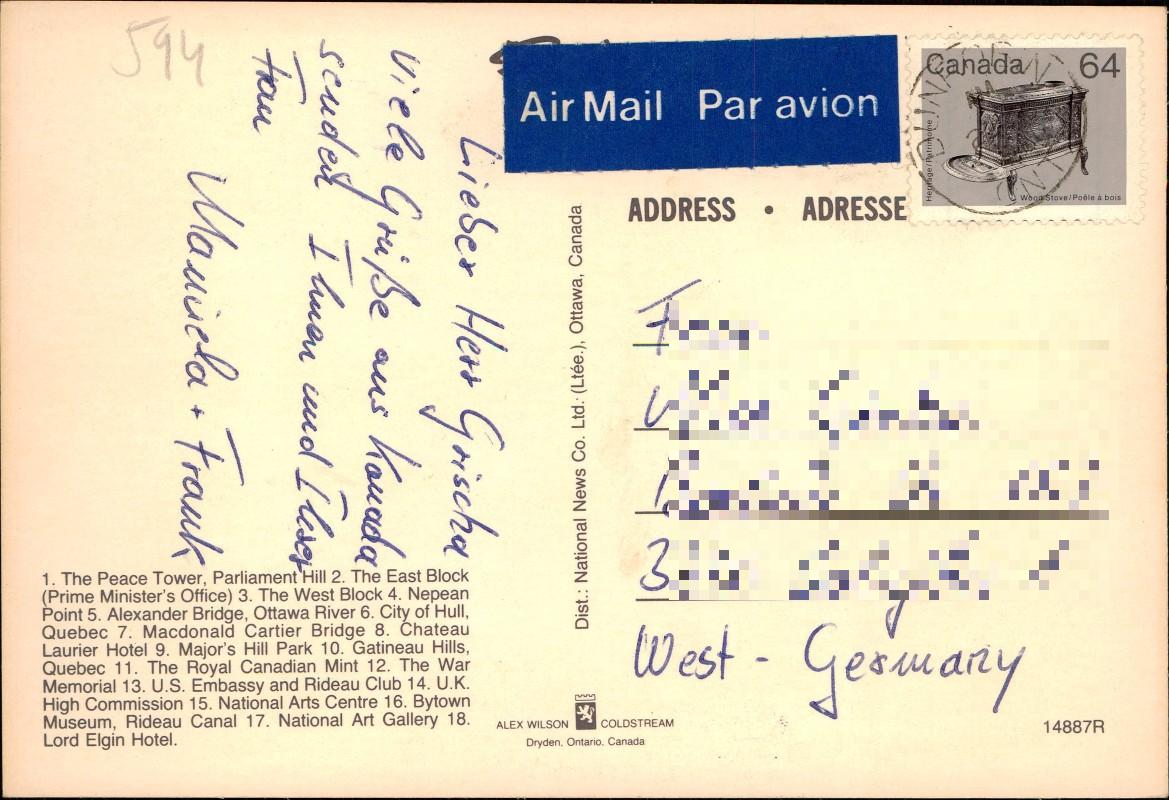 594
Lieber Herr Grischa
Viele Grüße aus Kanada
sendet Ihnen und Ihrer
Frau
Manuela + Frank
1. The Peace Tower, Parliament Hill 2. The East Block
(Prime Minister's Office) 3. The West Block 4. Nepean
Point 5. Alexander Bridge, Ottawa River 6. City of Hull,
Quebec 7. Macdonald Cartier Bridge 8. Chateau
Laurier Hotel 9. Major's Hill Park 10. Gatineau Hills,
Quebec 11. The Royal Canadian Mint 12. The War
Memorial 13. U.S. Embassy and Rideau Club 14. U.K.
High Commission 15. National Arts Centre 16. Bytown
Museum, Rideau Canal 17. National Art Gallery 18.
Lord Elgin Hotel.
Dist.: National News Co. Ltd.: (Ltée.), Ottawa, Canada
ALEX WILSON COLDSTREAM
Dryden, Ontario, Canada
Air Mail Par avion
Canada 64
Heritage/Patrimoine
Wood Stove/Poêle à bois
ADDRESS • ADRESSE
West - Germany
14887R